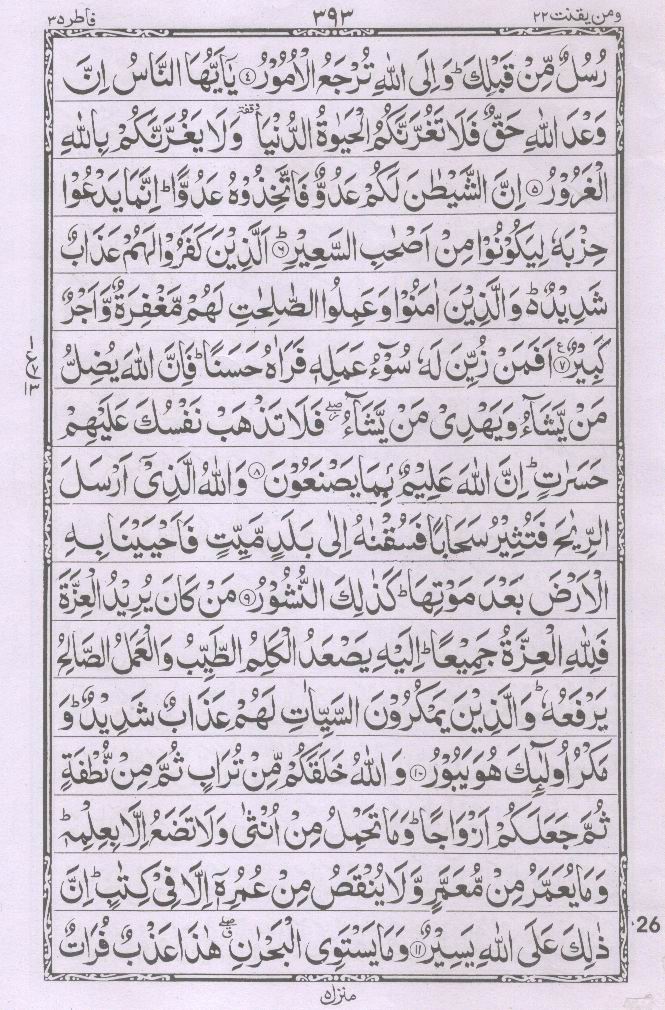 ومن یقنت ۲۲ ۳۹۳ فاطر ۳۵
رُسُلٌ مِّنْ قَبْلِكَ ؕ وَاِلَى اللّٰهِ تُرْجَعُ الْاُمُوْرُ ﴿۴﴾ يٰۤاَيُّهَا النَّاسُ اِنَّ
وَعْدَ اللّٰهِ حَقٌّ فَلَا تَغُرَّنَّكُمُ الْحَيٰوةُ الدُّنْيَا ۥ وقفة وَلَا يَغُرَّنَّكُمْ بِاللّٰهِ
الْغَرُوْرُ ﴿۵﴾ اِنَّ الشَّيْطٰنَ لَكُمْ عَدُوٌّ فَاتَّخِذُوْهُ عَدُوًّا ؕ اِنَّمَا يَدْعُوْا
حِزْبَهٗ لِيَكُوْنُوْا مِنْ اَصْحٰبِ السَّعِيْرِ ؕ ﴿۶﴾ اَلَّذِيْنَ كَفَرُوْا لَهُمْ عَذَابٌ
شَدِيْدٌ ۬ؕ وَالَّذِيْنَ اٰمَنُوْا وَعَمِلُوا الصّٰلِحٰتِ لَهُمْ مَّغْفِرَةٌ وَّاَجْرٌ
كَبِيْرٌ ﴿۷﴾ ع اَفَمَنْ زُيِّنَ لَهٗ سُوْٓءُ عَمَلِهٖ فَرَاٰهُ حَسَنًا ؕ فَاِنَّ اللّٰهَ يُضِلُّ
مَنْ يَّشَآءُ وَيَهْدِىْ مَنْ يَّشَآءُ ۖ فَلَا تَذْهَبْ نَفْسُكَ عَلَيْهِمْ
حَسَرٰتٍ ؕ اِنَّ اللّٰهَ عَلِيْمٌۢ بِمَا يَصْنَعُوْنَ ﴿۸﴾ وَاللّٰهُ الَّذِىْۤ اَرْسَلَ
الرِّيٰحَ فَتُثِيْرُ سَحَابًا فَسُقْنٰهُ اِلٰى بَلَدٍ مَّيِّتٍ فَاَحْيَيْنَا بِهِ
الْاَرْضَ بَعْدَ مَوْتِهَا ؕ كَذٰلِكَ النُّشُوْرُ ﴿۹﴾ مَنْ كَانَ يُرِيْدُ الْعِزَّةَ
فَلِلّٰهِ الْعِزَّةُ جَمِيْعًا ؕ اِلَيْهِ يَصْعَدُ الْكَلِمُ الطَّيِّبُ وَالْعَمَلُ الصَّالِحُ
يَرْفَعُهٗ ؕ وَالَّذِيْنَ يَمْكُرُوْنَ السَّيِّاٰتِ لَهُمْ عَذَابٌ شَدِيْدٌ ؕ وَ
مَكْرُ اُولٰٓئِكَ هُوَ يَبُوْرُ ﴿۱۰﴾ وَاللّٰهُ خَلَقَكُمْ مِّنْ تُرَابٍ ثُمَّ مِنْ نُّطْفَةٍ
ثُمَّ جَعَلَكُمْ اَزْوَاجًا ؕ وَمَا تَحْمِلُ مِنْ اُنْثٰى وَلَا تَضَعُ اِلَّا بِعِلْمِهٖ ؕ
وَمَا يُعَمَّرُ مِنْ مُّعَمَّرٍ وَّلَا يُنْقَصُ مِنْ عُمُرِهٖۤ اِلَّا فِىْ كِتٰبٍ ؕ اِنَّ
ذٰلِكَ عَلَى اللّٰهِ يَسِيْرٌ ﴿۱۱﴾ وَمَا يَسْتَوِى الْبَحْرٰنِ ۖ هٰذَا عَذْبٌ فُرَاتٌ
26
منزل ۵